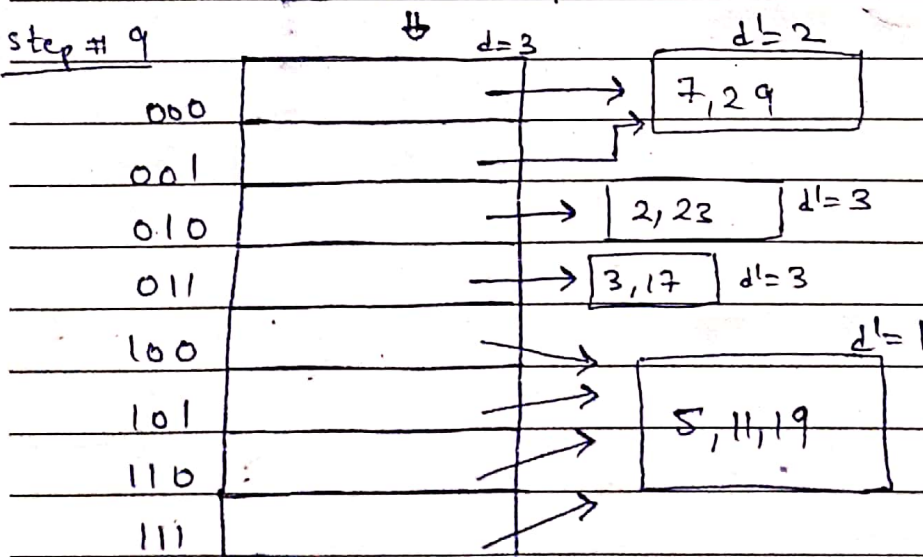 step # 9
d=3
d'=2
000
7,29
001
010
2,23
d'=3
011
3,17
d'=3
100
d'=1
101
5,11,19
110
111